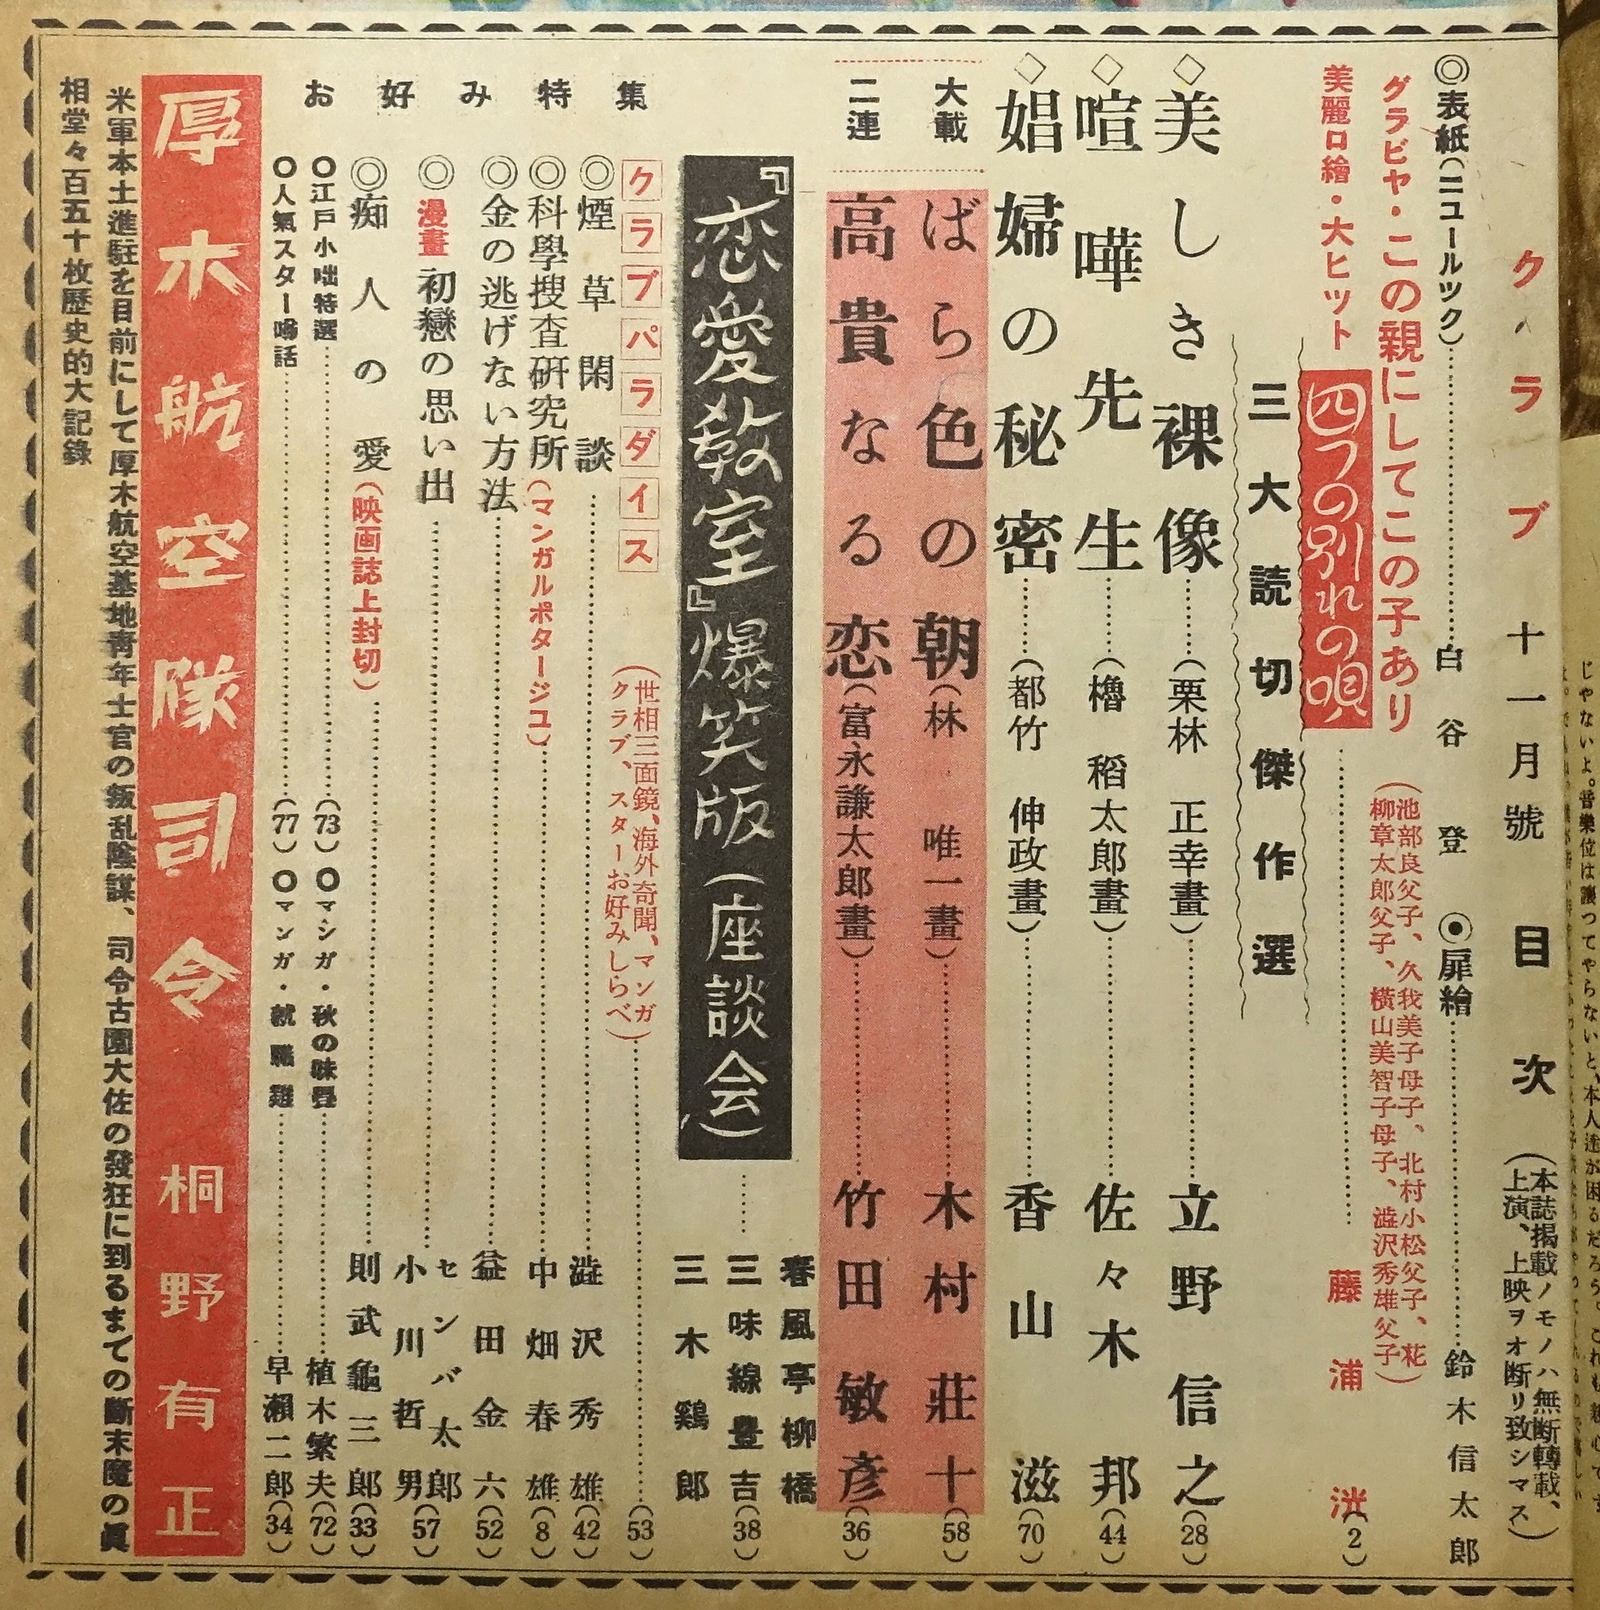 クラブ 十一月號 目次
(本誌揭載ノモノハ無断轉載、
上演、上映ヲオ断リ致シマス)
◎表紙(ニユールツク)……白谷登
◉扉繪……鈴木信太郎
グラビヤ・この親にしてこの子あり
(池部良父子、久我美子母子、北村小松父子、花
柳章太郎父子、橫山美智子母子、澁沢秀雄父子)
美麗口繪・大ヒツト
四つの別れの唄……藤浦洸(2)
三大読切傑作選
◇美しき裸像……(栗林正幸畫)……立野信之(28)
◇喧嘩先生……(櫓稻太郎畫)……佐々木邦(44)
◇娼婦の秘密……(都竹伸政畫)……香山滋(70)
大載
二連
ばら色の朝(林唯一畫)……木村莊十(58)
高貴なる恋(富永謙太郎畫)……竹田敏彦(36)
『恋愛敎室』爆笑版(座談会)……
春風亭柳橋
三味線豊吉(38)
三木鷄郎
お好み特集
クラブパラダイス
(世相三面鏡、海外奇聞、マンガ
クラブ、スターお好みしらべ)……(53)
◎煙草閑談……澁沢秀雄(42)
◎科學搜査研究所(マンガルポタージユ)……中畑春雄(8)
◎金の逃げない方法……益田金六(52)
◎漫畫 初戀の思い出……センバ太郎
小川哲男(57)
◎痴人の愛(映画誌上封切)……則武龜三郎(33)
○江戸小咄特選……(73)
○マンガ・秋の味覺……植木繁夫(72)
○人氣スター噂話……(77)
○マンガ・就職難……早瀬二郎(34)
厚木航空隊司令 桐野有正
米軍本土進駐を目前にして厚木航空基地靑年士官の叛乱陰謀、司令古園大佐の發狂に到るまでの斷末魔の眞
相堂々百五十枚歷史的大記錄